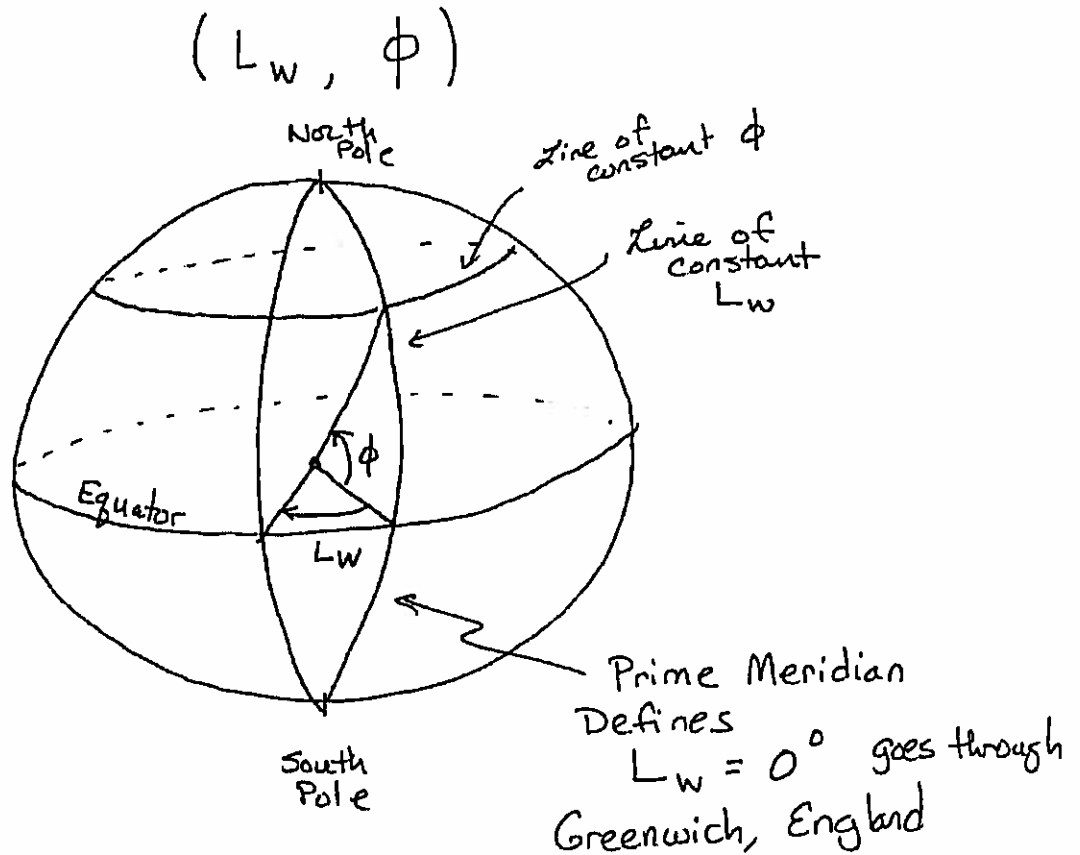 ( L_W , ϕ )
North
Pole
Line of
constant ϕ
Line of
constant
L_W
ϕ
Equator
L_W
Prime Meridian
Defines
L_W = 0° goes through
Greenwich, England
South
Pole